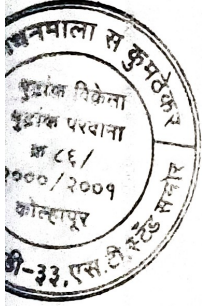 धनमाला स कुमठेकर
मुद्रांक विक्रेता
मुद्रांक परवाना
क्र ८६/
२०००/२००१
कोल्हापूर
बी-३३,एस.टी.स्टँड समोर